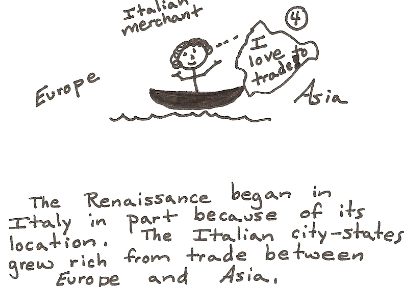 Italian
merchant
4
I
love
to
trade
Europe
Asia
The Renaissance began in
Italy in part because of its
location. The Italian city-states
grew rich from trade between
Europe and Asia.